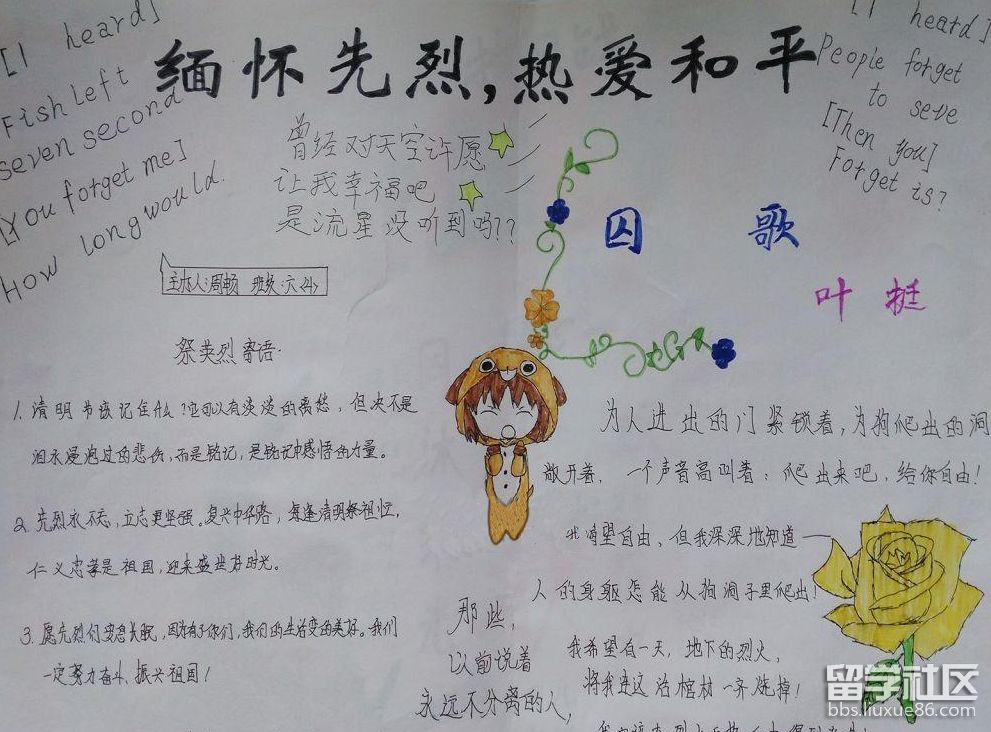 缅怀先烈,热爱和平
[I heard]
Fish left
seven second
[You forget me]
How long would.
[I heard]
People forget
to seve
[Then you]
Forget is?
曾经对天空许愿
让我幸福吧
是流星没听到吗??
主办人:周畅 班级:六〈4〉
祭英烈寄语.
1. 清明节该记住什么?也可以有淡淡的离愁,但决不是
泪水漫泡过的悲伤,而是铭记,是铭记中感悟的力量。
2. 先烈永不忘,立志更坚强。复兴中华路,每逢清明祭祖恒,
仁义忠孝是祖国,迎来盛世好时光。
3. 愿先烈们安息长眠,因为有了你们,我们的生活变的美好。我们
一定努力奋斗、振兴祖国!
囚 歌
叶 挺
为人进出的门紧锁着,为狗爬出的洞
敞开着. 一个声音高叫着:爬出来吧,给你自由!
我渴望自由,但我深深地知道——
人的身躯怎能从狗洞子里爬出!
我希望有一天,地下的烈火,
将我连这活棺材一齐烧掉!
那些,
以前说着
永远不分离的人,
留学社区
bbs.liuxue86.com